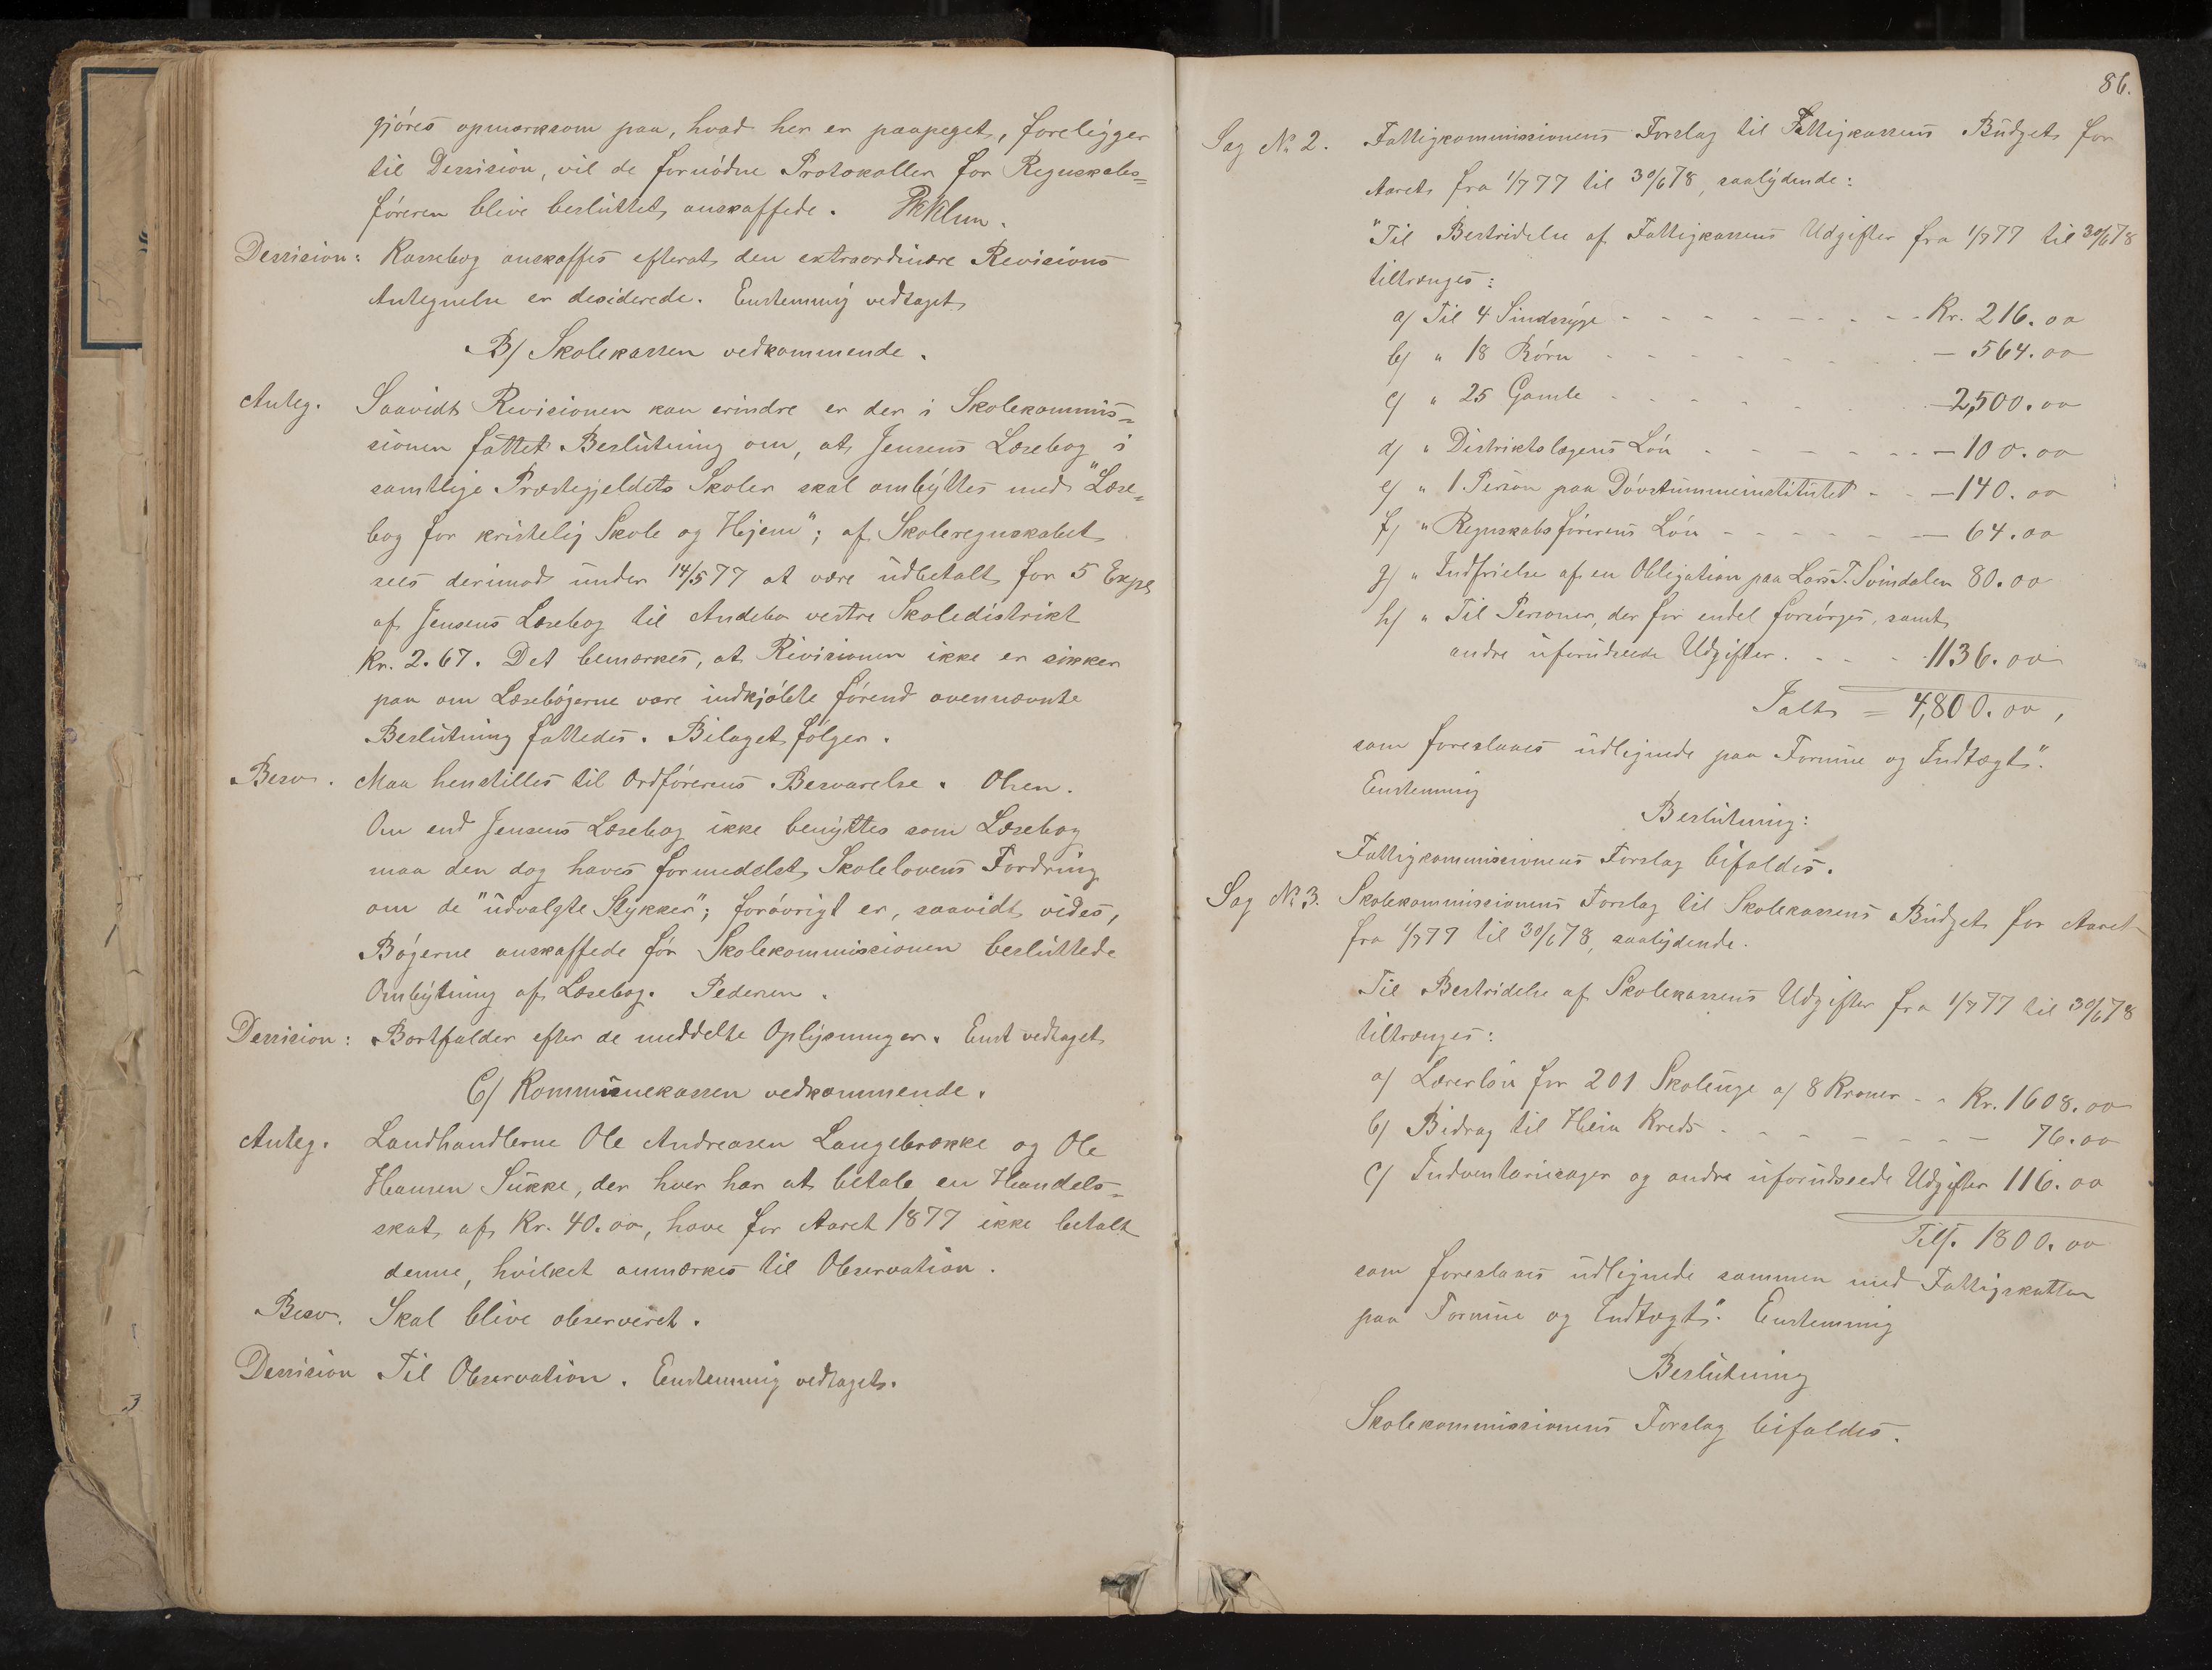 gjøres opmærksom paa, hvad her er paapeget, foreligger
til Dessision, vil de fornødne Protokoller for Regnskabs=
føreren blive besluttet anskaffede.
Dessision: Kassebog anskaffes efterat den extraordinære Revisions
Antegnelse er desiderede. Enstemmig vedtaget
B/ Skolekassen vedkommende.
Anteg. Saavidt Revisionen kan erindre er der i Skolekommis=
sionen fattet Beslutning om, at Jensens Læsebog i
samtlige Præstegjeldets Skoler skal ombyttes med "Læse=
bog for kristelig Skole og Hjem"; af Skoleregnskabet
sees derimod under 14/5 77 at være udbetalt for 5 Expl
af Jensens Læsebog til Andebo vestre Skoledistrikt
Kr. 2.67. Det bemærkes, at Revisionen ikke er sikker
paa om Læsebøgerne vare indkjøbte førend ovennævnte
Beslutning fattedes. Bilaget følger.
Besv. Maa henstilles til Ordførerens Besvarelse. Olsen.
Om end Jensens Læsebog ikke benyttes som Læsebog
maa den dog haves formedelst Skolelovens Fordring
om de "udvalgte Stykker"; forøvrigt er, saavidt vides,
Bøgerne anskaffede før Skolekommissionen besluttede
Ombytning af Læsebog. Pedersen.
Dessision: Bortfalder efter de meddelte Oplysninger. Enst vedtaget
C/ Kommunekassen vedkommende.
Anteg. Landhandlerne Ole Andreasen Langebrække og Ole
Hansen Sukke, der hver har at betale en Handels=
skat af Kr. 40.00, have for Aaret 1877 ikke betalt
denne, hvilket anmærkes til Observation.
Besv. Skal blive observeret.
Dessision Til Observation. Enstemmig vedtaget.
86.
Sag No 2. Fattigkommissionens Forslag til Fattigkassens Budget for
Aaret fra 1/7 77 til 30/6 78, saalydende:
"Til Bestridelse af Fattigkassens Udgifter fra 1/7 77 til 30/6 78
tiltrænges:
a/ Til 4 Sindssyge - - - - - - - - Kr. 216.00
b/ " 18 Børn - - - - - - - - — 564.00
c/ " 25 Gamle - - - - - - - — 2,500.00
d/ " Distriktslægens Løn - - - - - - — 100.00
e/ " 1 Person paa Døvstummeinstitutet - - — 140.00
f/ " Regnskabsførerens Løn - - - - - - — 64.00
g/ " Indfrielse af en Obligation paa Lars T. Svindalen 80.00
h/ " Til Personer, der for endel forsørges, samt
andre uforudseede Udgifter. - - - - 1136.00
Ialt = 4,800.00,
som foreslaaes udlignede paa Formue og Indtægt".
Enstemmig
Beslutning:
Fattigkommissionens Forslag bifaldes.
Sag No 3. Skolekommissionens Forslag til Skolekassens Budget for Aaret
fra 1/7 77 til 30/6 78, saalydende.
Til Bestridelse af Skolekassens Udgifter fra 1/7 77 til 30/6 78
tiltrænges:
a/ Lærerløn for 201 Skoleuge a/ 8 Kroner - - Kr. 1608.00
b/ Bidrag til Hein Kreds - - - - - - - — 76.00
c/ Indventariesager og andre uforudseede Udgifter 116.00
Tils. 1800.00
som foreslaaes udlignede sammen med Fattigskatten
paa Formue og Indtægt". Enstemmig
Beslutning
Skolekommissionens Forslag bifaldes.